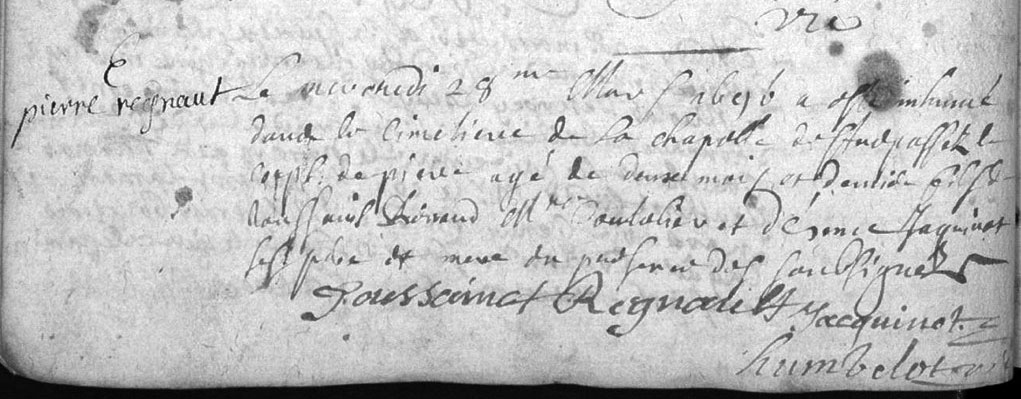 vic
pierre regnaut
Le vendredi 28me Mars 1696 a esté inhumé
dans le Cimetiere de la chapelle des trepassez le
corps de pierre agé de deux mois et demi fils de
toussaint Me et d'Edmee Jaquinot
ses pere et mere en presence des soubsignes
Toussainct Regnault Jacquinot
humbelot vic